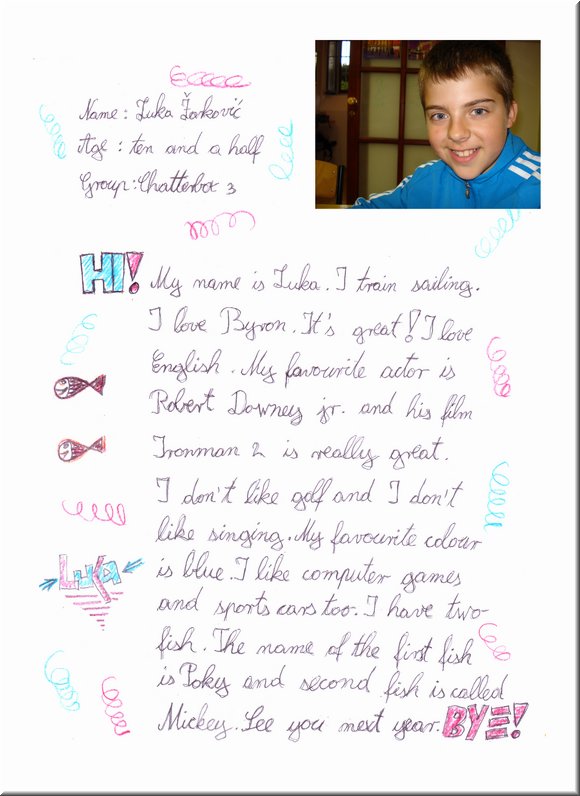 Name: Luka Žarković
Age: ten and a half
Group: Chatterbox 3
HI! My name is Luka. I train sailing.
I love Byron. It's great! I love
English. My favourite actor is
Robert Downey jr. and his film
Ironman 2 is really great.
I don't like golf and I don't
like singing. My favourite colour
LUKA
is blue. I like computer games
and sports cars too. I have two
fish. The name of the first fish
is Poky and second fish is called
Mickey. See you next year. BYE!